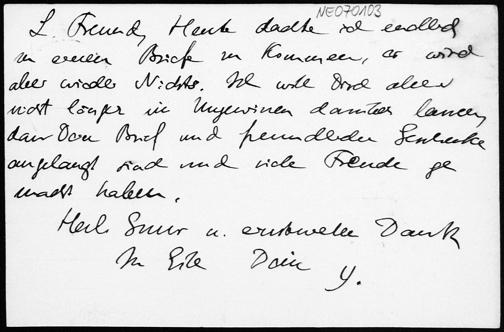 NE070103
L. Freund, Heute dachte ich endlich
zu einem Briefe zu kommen, es wird
aber wieder Nichts. Ich will Dich aber
nicht länger im Ungewissen darüber lassen,
dass Dein Brief und freundlichen Geschenke
angelangt sind und viele Freude ge
macht haben.
Herzl Gruss u. einstweilen Dank
In Eile Dein